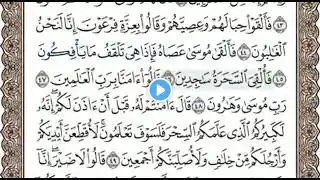 فَأَلْقَوْا۟ حِبَالَهُمْ وَعِصِيَّهُمْ وَقَالُوا۟ بِعِزَّةِ فِرْعَوْنَ إِنَّا لَنَحْنُ
ٱلْغَٰلِبُونَ ٤٤ فَأَلْقَىٰ مُوسَىٰ عَصَاهُ فَإِذَا هِىَ تَلْقَفُ مَا يَأْفِكُونَ
٤٥ فَأُلْقِىَ ٱلسَّحَرَةُ سَٰجِدِينَ ٤٦ قَالُوٓا۟ ءَامَنَّا بِرَبِّ ٱلْعَٰلَمِينَ ٤٧
رَبِّ مُوسَىٰ وَهَٰرُونَ ٤٨ قَالَ ءَامَنتُمْ لَهُۥ قَبْلَ أَنْ ءَاذَنَ لَكُمْ إِنَّهُۥ
لَكَبِيرُكُمُ ٱلَّذِى عَلَّمَكُمُ ٱلسِّحْرَ فَلَسَوْفَ تَعْلَمُونَ لَأُقَطِّعَنَّ أَيْدِيَكُمْ
وَأَرْجُلَكُم مِّنْ خِلَٰفٍ وَلَأُصَلِّبَنَّكُمْ أَجْمَعِينَ ٤٩ قَالُوا۟ لَا ضَيْرَ إِنَّآ